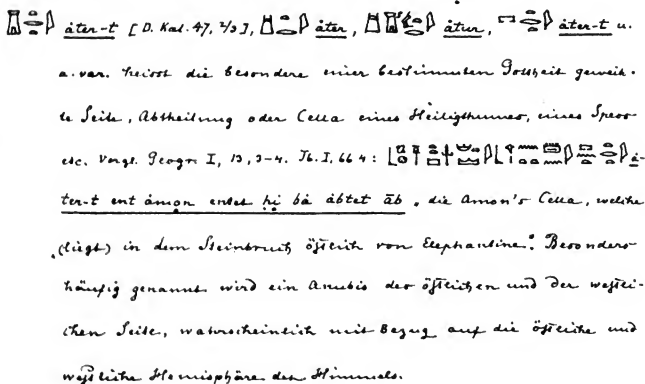 áter-t [D. Kal. 47, 2/3], áter, átur, áter-t u.
a. var. heisst die besondere einer bestimmten Gottheit geweih-
te Seite, Abtheilung oder Cella eines Heiligthumes, eines Speos
etc. Vergl. Geogr. I, 13, 3-4. Tb. I, 66 4: á-
ter-t ent ámon entet ḥi bá ábtet āb „die Amon's Cella, welche
(liegt) in dem Steinbruch östlich von Elephantine." Besonders
häufig genannt wird ein Anubis der östlichen und der westli-
chen Seite, wahrscheinlich mit Bezug auf die östliche und
westliche Hemisphäre des Himmels.